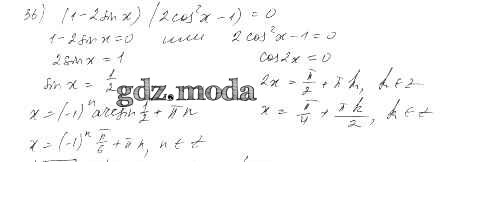 3б) (1-2sin x) (2cos²x - 1) = 0
1-2sin x = 0 или 2cos²x - 1 = 0
2sin x = 1 cos 2x = 0
sin x = 1/2 2x = π/2 + πk, k ∈ z
gdz.moda
x = (-1)ⁿ arcsin 1/2 + πn x = π/4 + πk/2, k ∈ z
x = (-1)ⁿ π/6 + πn, n ∈ z